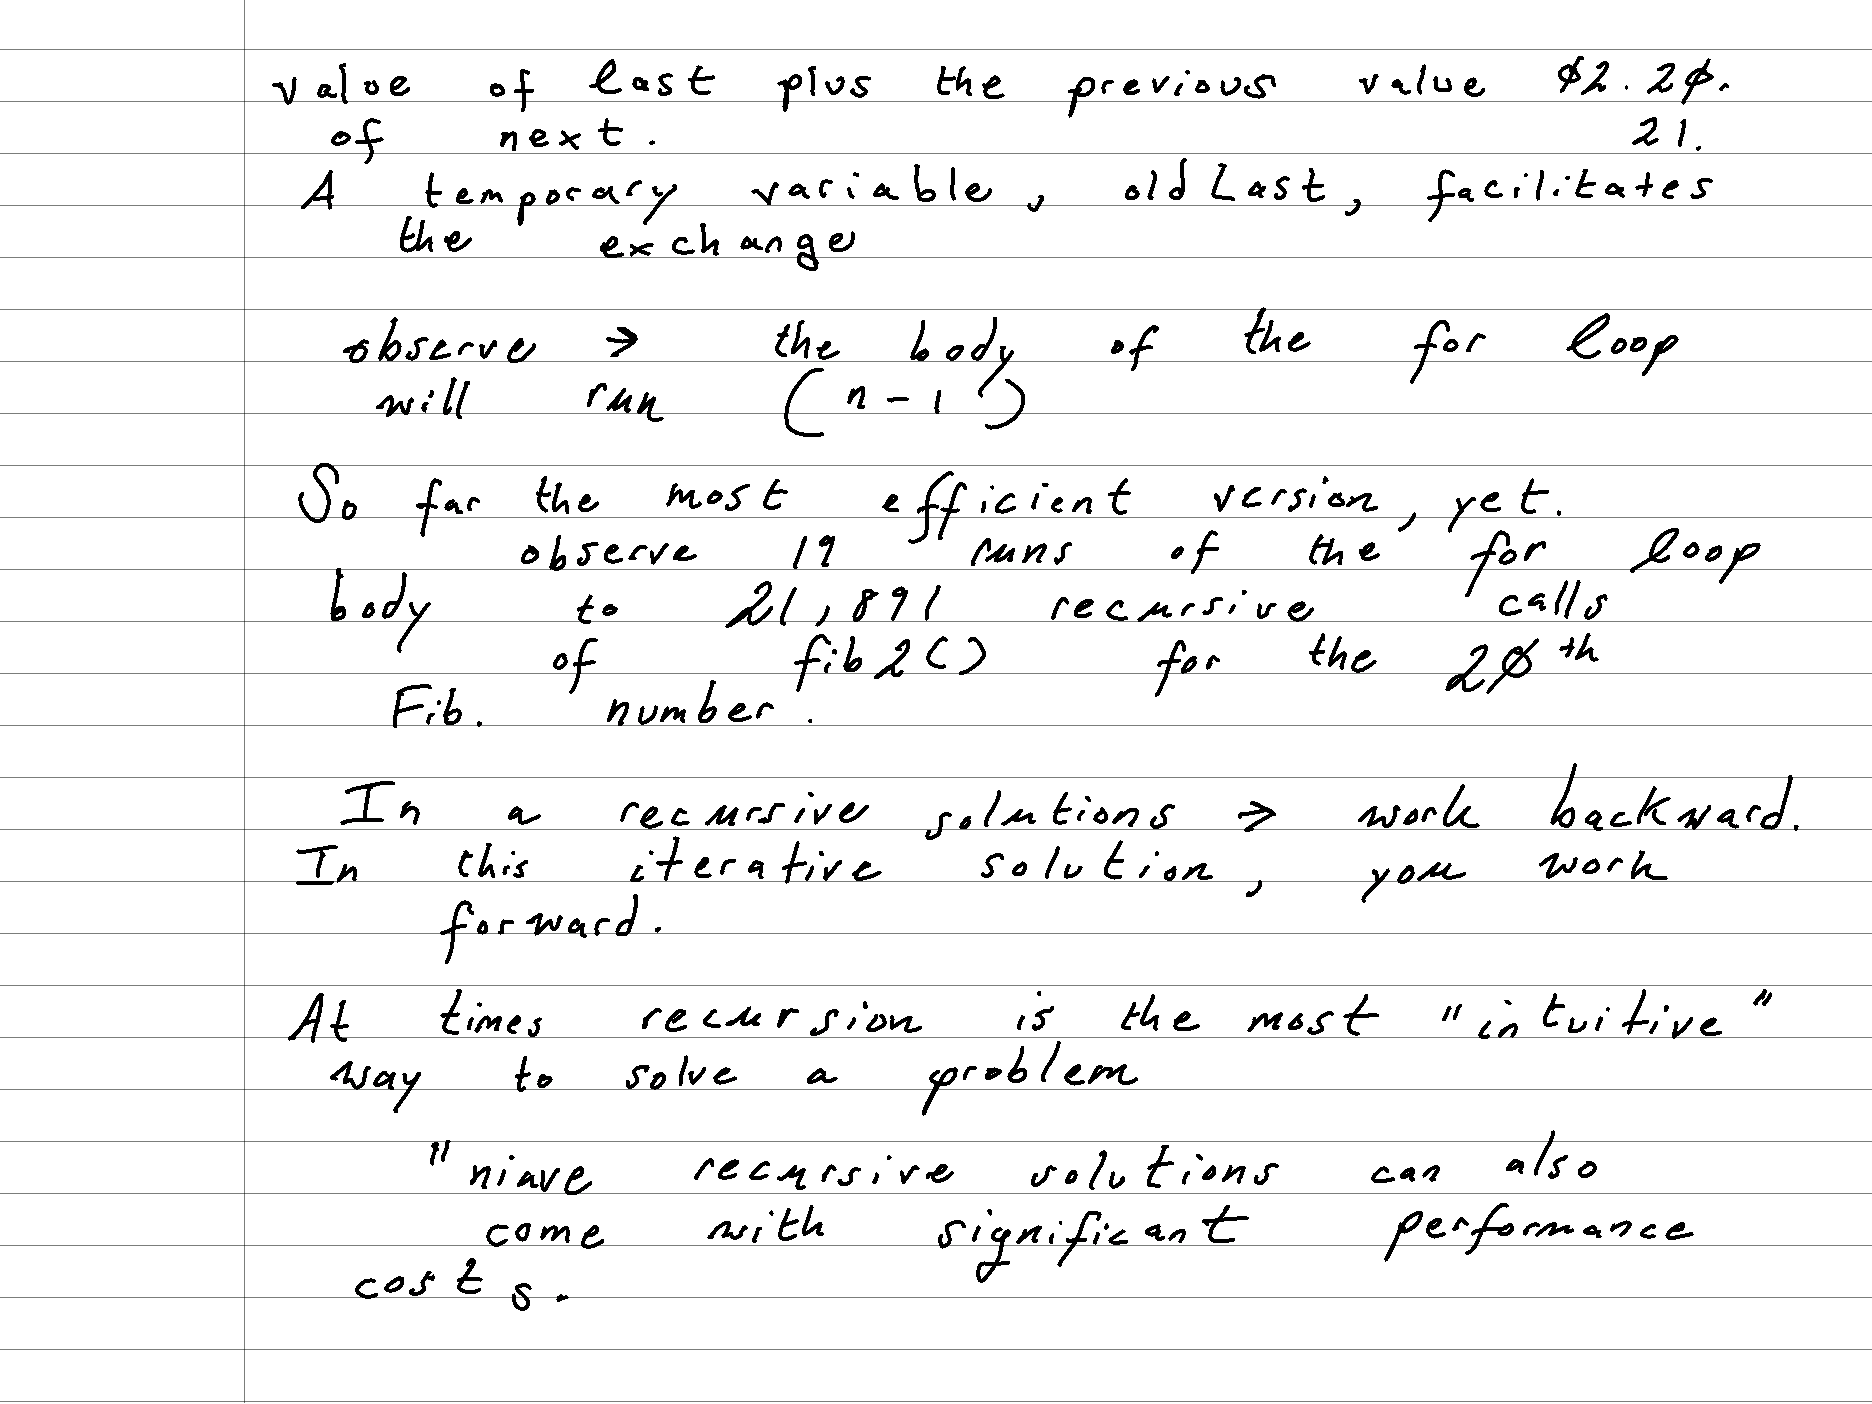 value of last plus the previous value 02.20.
of next. 21.
A temporary variable, old Last, facilitates
the exchange
observe → the body of the for loop
will run (n-1)
So far the most efficient version, yet.
observe 19 runs of the for loop
body to 21,891 recursive calls
of fib2() for the 20th
Fib. number.
In a recursive solutions → work backward.
In this iterative solution, you work
forward.
At times recursion is the most "intuitive"
way to solve a problem
"niave recursive solutions can also
come with significant performance
costs.